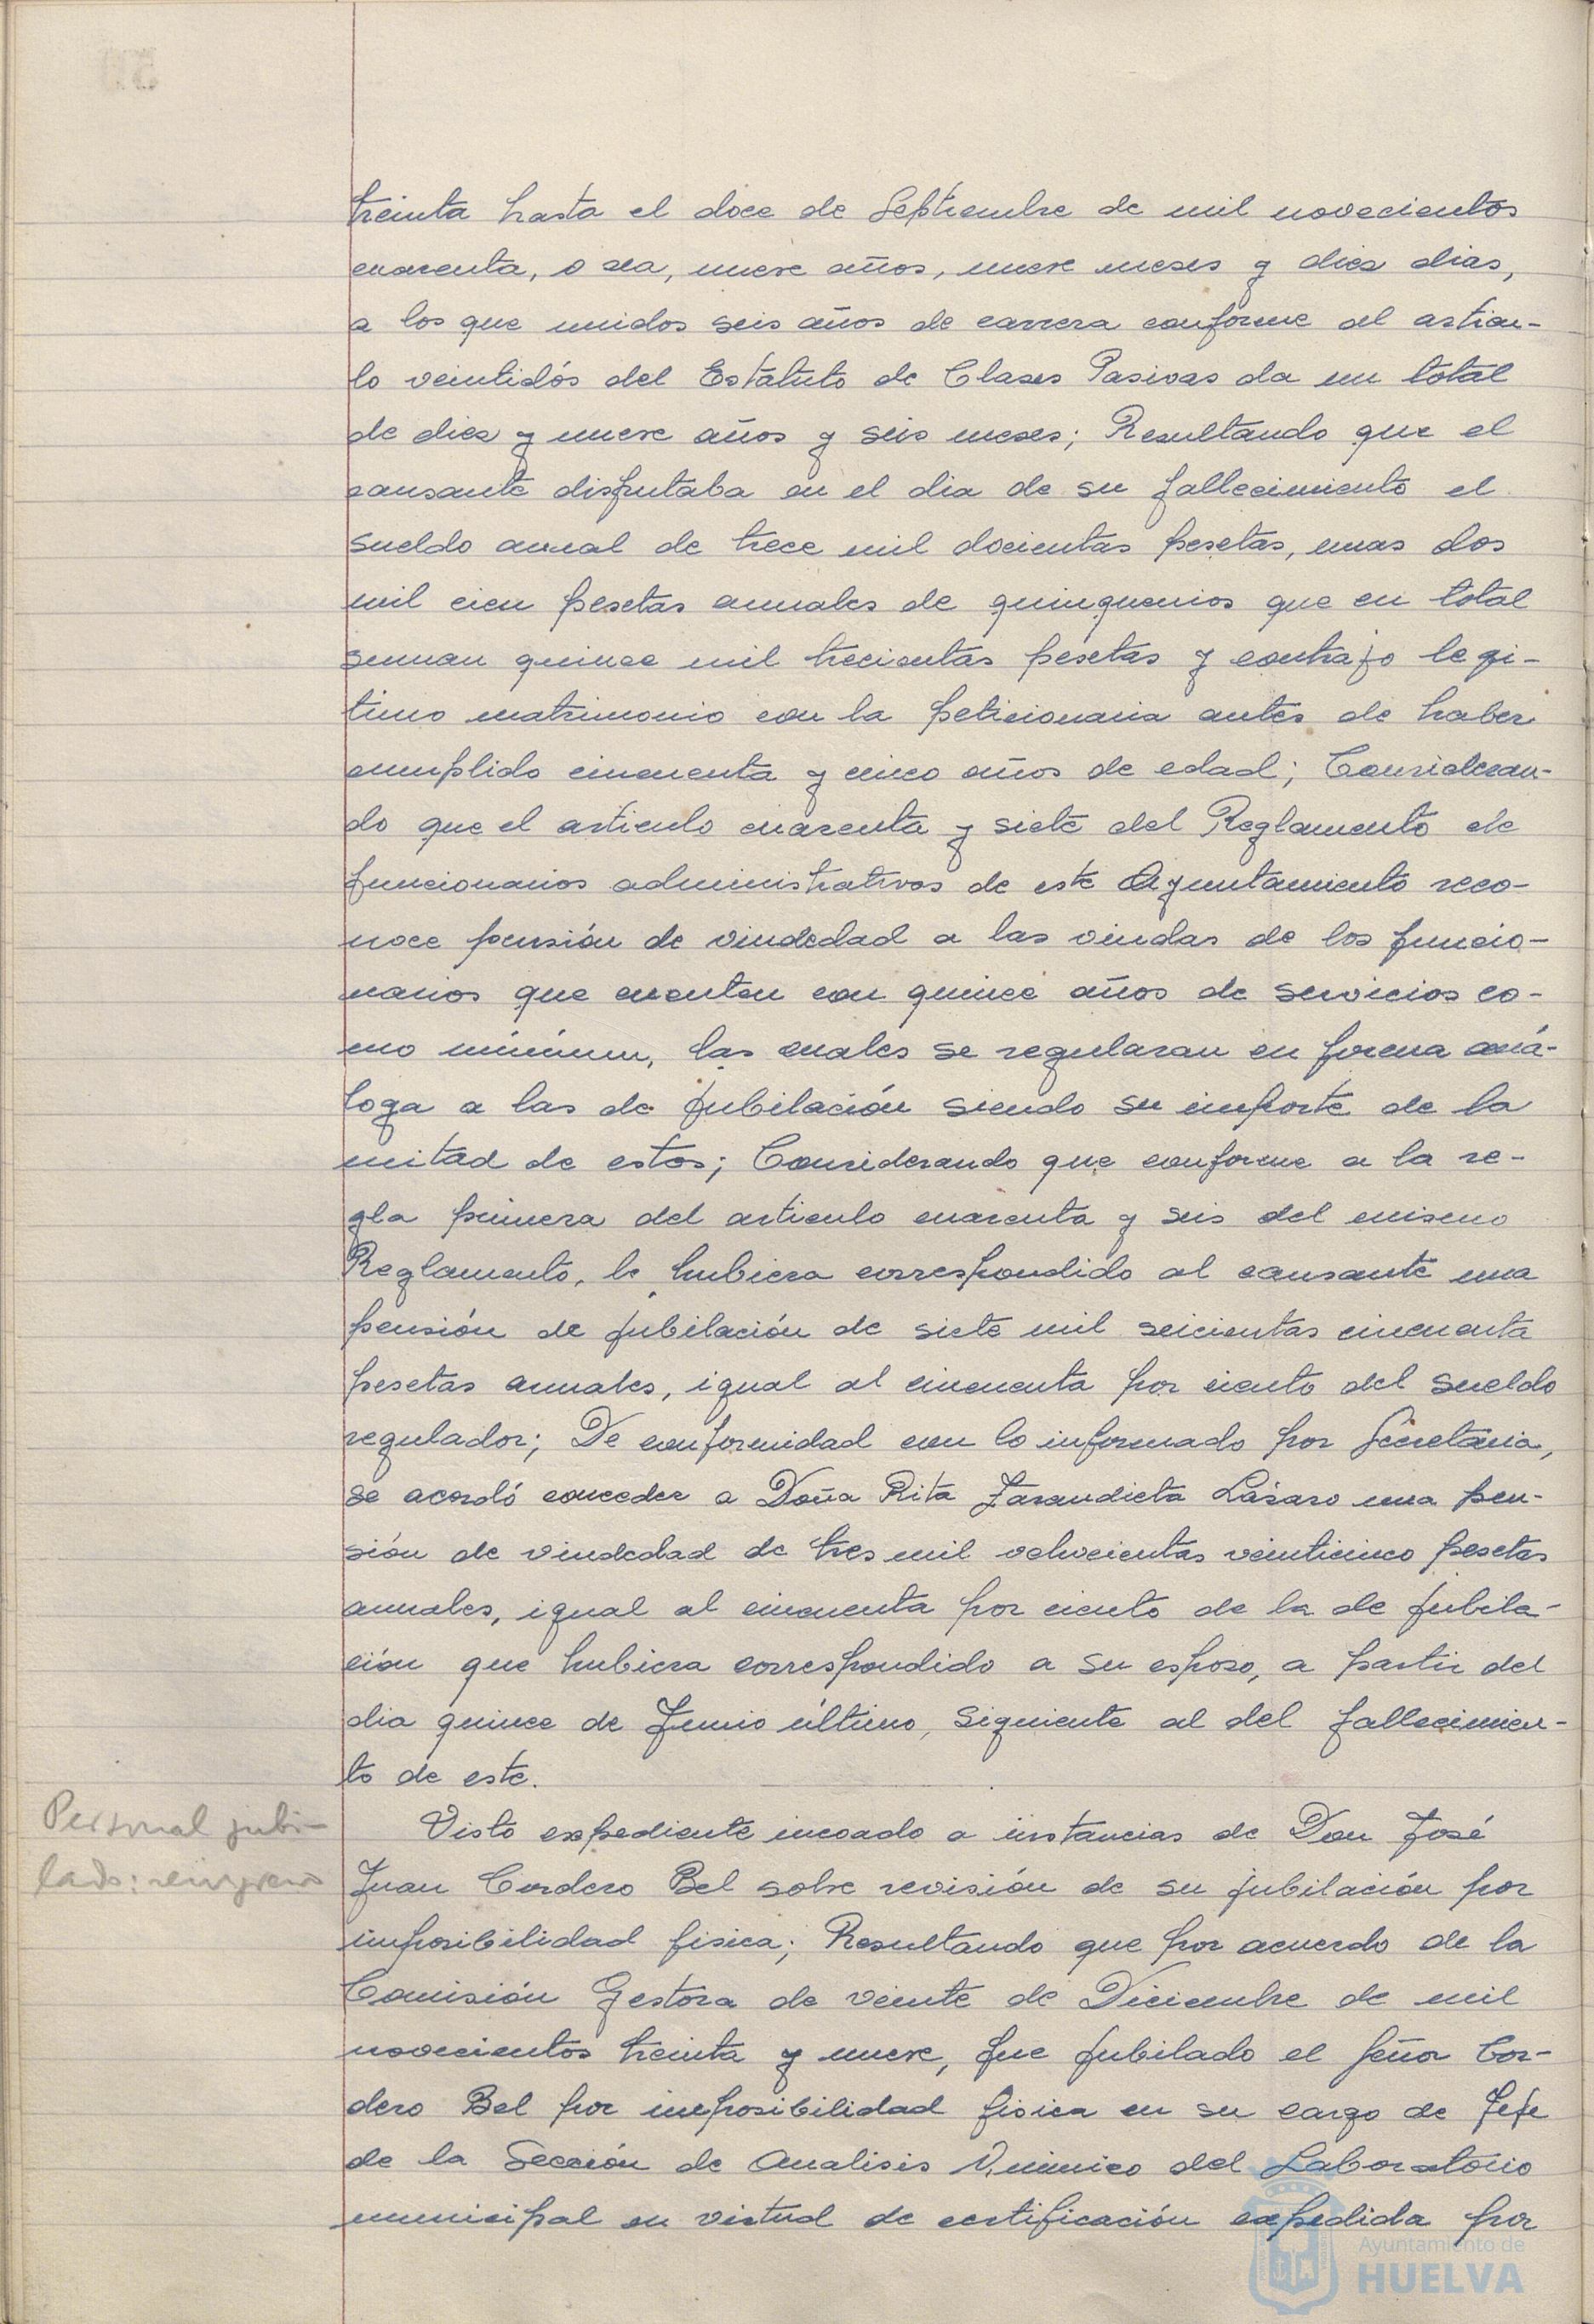 treinta hasta el doce de Septiembre de mil novecientos
cuarenta, o sea, nueve años, nueve meses y diez dias,
a los que unidos seis años de carrera conforme al articu-
lo veintidós del Estatuto de Clases Pasivas da un total
de diez y nueve años y seis meses; Resultando que el
causante disfrutaba en el dia de su fallecimiento el
sueldo anual de trece mil docientas pesetas, mas dos
mil cien pesetas anuales de quinquenios que en total
suman quince mil trecientas pesetas y contrajo legi-
timo matrimonio con la peticionaria antes de haber
cumplido cincuenta y cinco años de edad; Consideran-
do que el articulo cuarenta y siete del Reglamento de
funcionarios administrativos de este Ayuntamiento reco-
noce pensión de viudedad a las viudas de los funcio-
narios que cuenten con quince años de servicios co-
mo mínimun, las cuales se regularan en forma aná-
loga a las de jubilación siendo su importe de la
mitad de estos; Considerando que conforme a la re-
gla primera del articulo cuarenta y seis del mismo
Reglamento, le hubiera correspondido al causante una
pensión de jubilación de siete mil seicientas cincuenta
pesetas anuales, igual al cincuenta por ciento del sueldo
regulador; De conformidad con lo informado por Secretaria,
se acordó conceder a Doña Rita Zarandieta Lázaro una pen-
sión de viudedad de tres mil ochocientas veinticinco pesetas
anuales, igual al cincuenta por ciento de la de jubila-
ción que hubiera correspondido a su esposo, a partir del
dia quince de Junio último, siguiente al del fallecimien-
to de este.
Personal jubi-
lado: reingreso
Visto expediente incoado a instancias de Don José
Juan Cordero Bel sobre revisión de su jubilación por
imposibilidad fisica; Resultando que por acuerdo de la
Comisión Gestora de veinte de Diciembre de mil
novecientos treinta y nueve, fue jubilado el señor Cor-
dero Bel por imposibilidad fisica en su cargo de Jefe
de la Sección de Analisis Quimico del Laboratorio
municipal en virtud de certificación expedida por
Ayuntamiento de
HUELVA